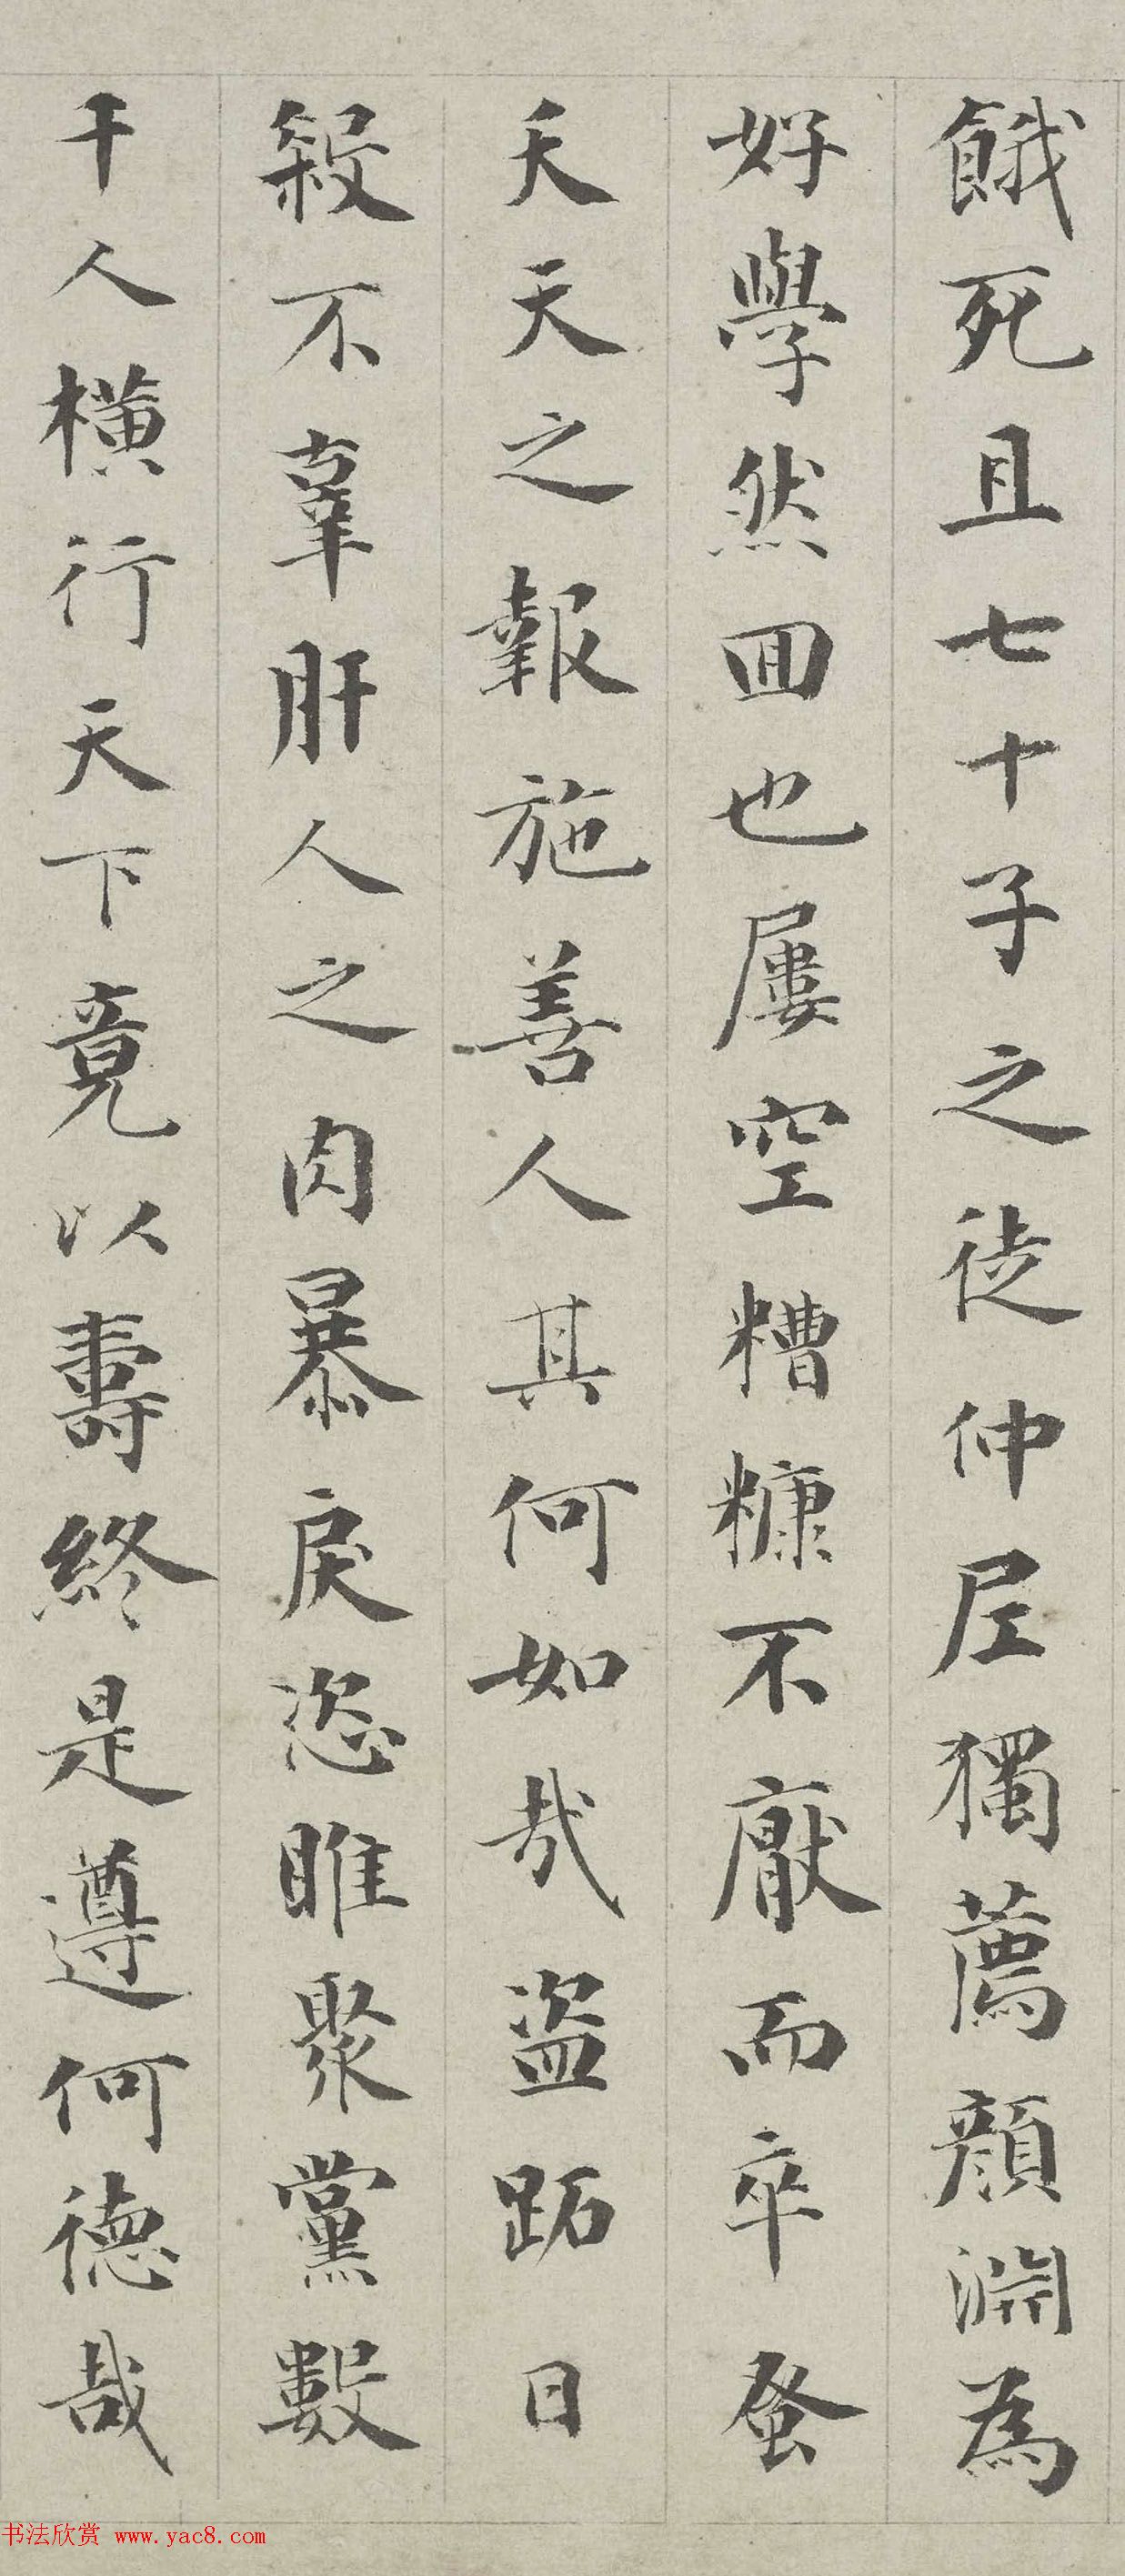 餓死且七十子之徒仲尼獨薦顏淵為
好學然回也屢空糟糠不厭而卒蚤
夭天之報施善人其何如哉盜跖日
殺不辜肝人之肉暴戾恣睢聚黨數
千人橫行天下竟以壽終是遵何德哉
书法欣赏 www.yac8.com